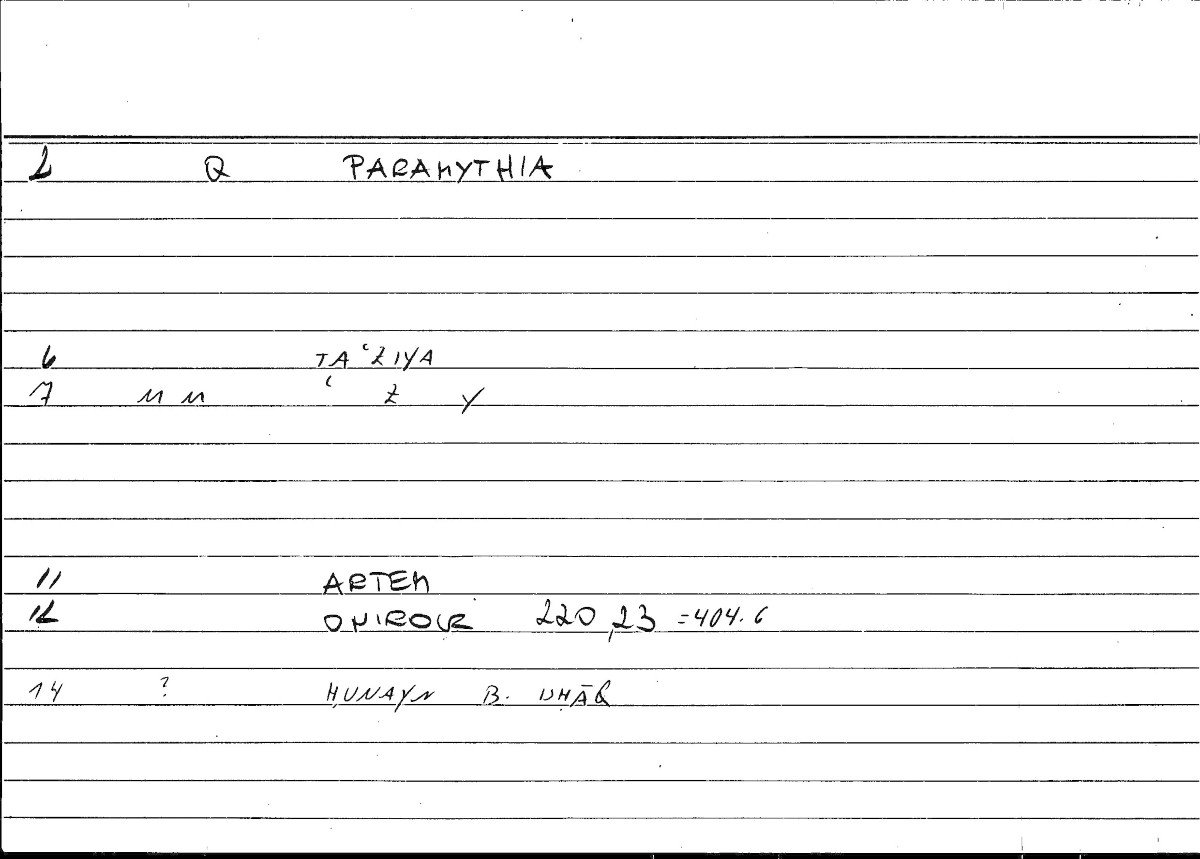 2 Q PARAMYTHIA
6 TAʿZIYA
7 MM ʿ Z Y
11 ARTEM
12 ONIROCR 220,23 =404.6
14 ? ḤUNAYN B. ISḤĀQ